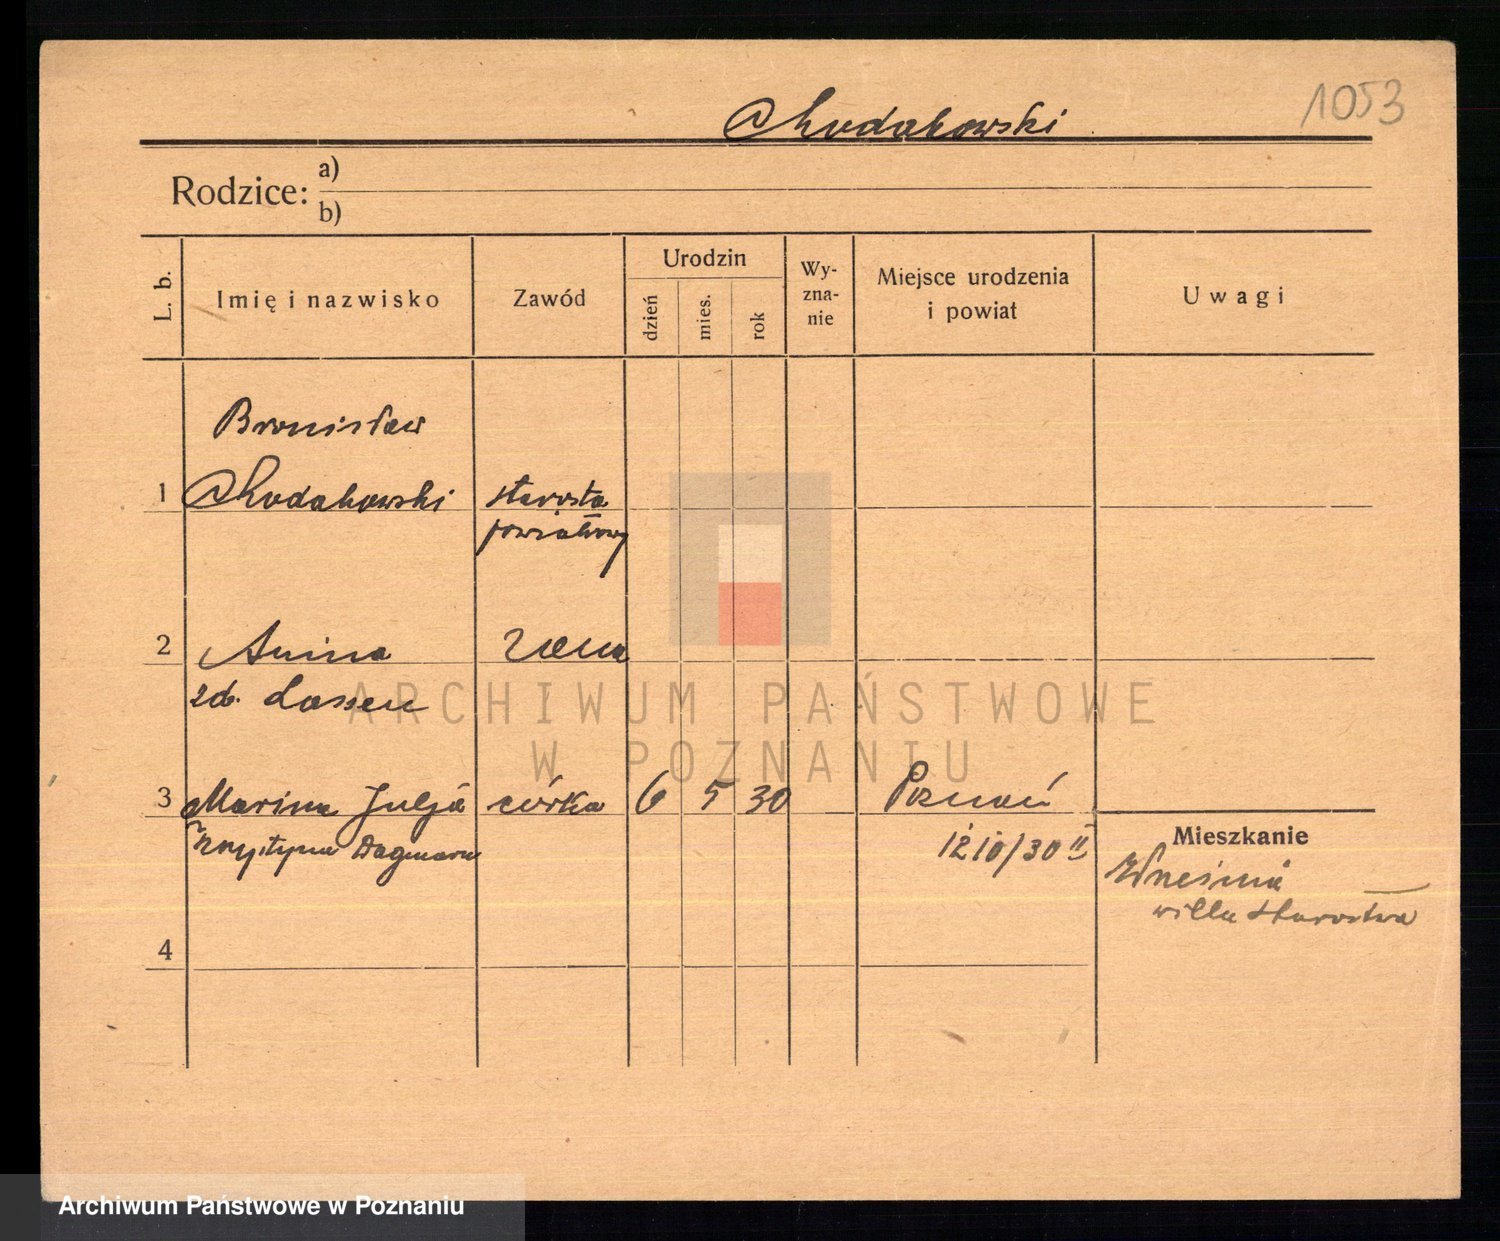 1053
Chodakowski
Rodzice: a)
b)
L. b.
Imię i nazwisko
Zawód
Urodzin
dzień
mies.
rok
Wy-
zna-
nie
Miejsce urodzenia
i powiat
Uwagi
Bronisław
1 Chodakowski starosta
powiatowy
2 Anina żona
zd. Lassen
3 Marina Julja córka 6 5 30 Poznań
Krystyna Dagmara 1210/30 II
Mieszkanie
Września
willa starostwa
4
ARCHIWUM PAŃSTWOWE
W POZNANIU
Archiwum Państwowe w Poznaniu